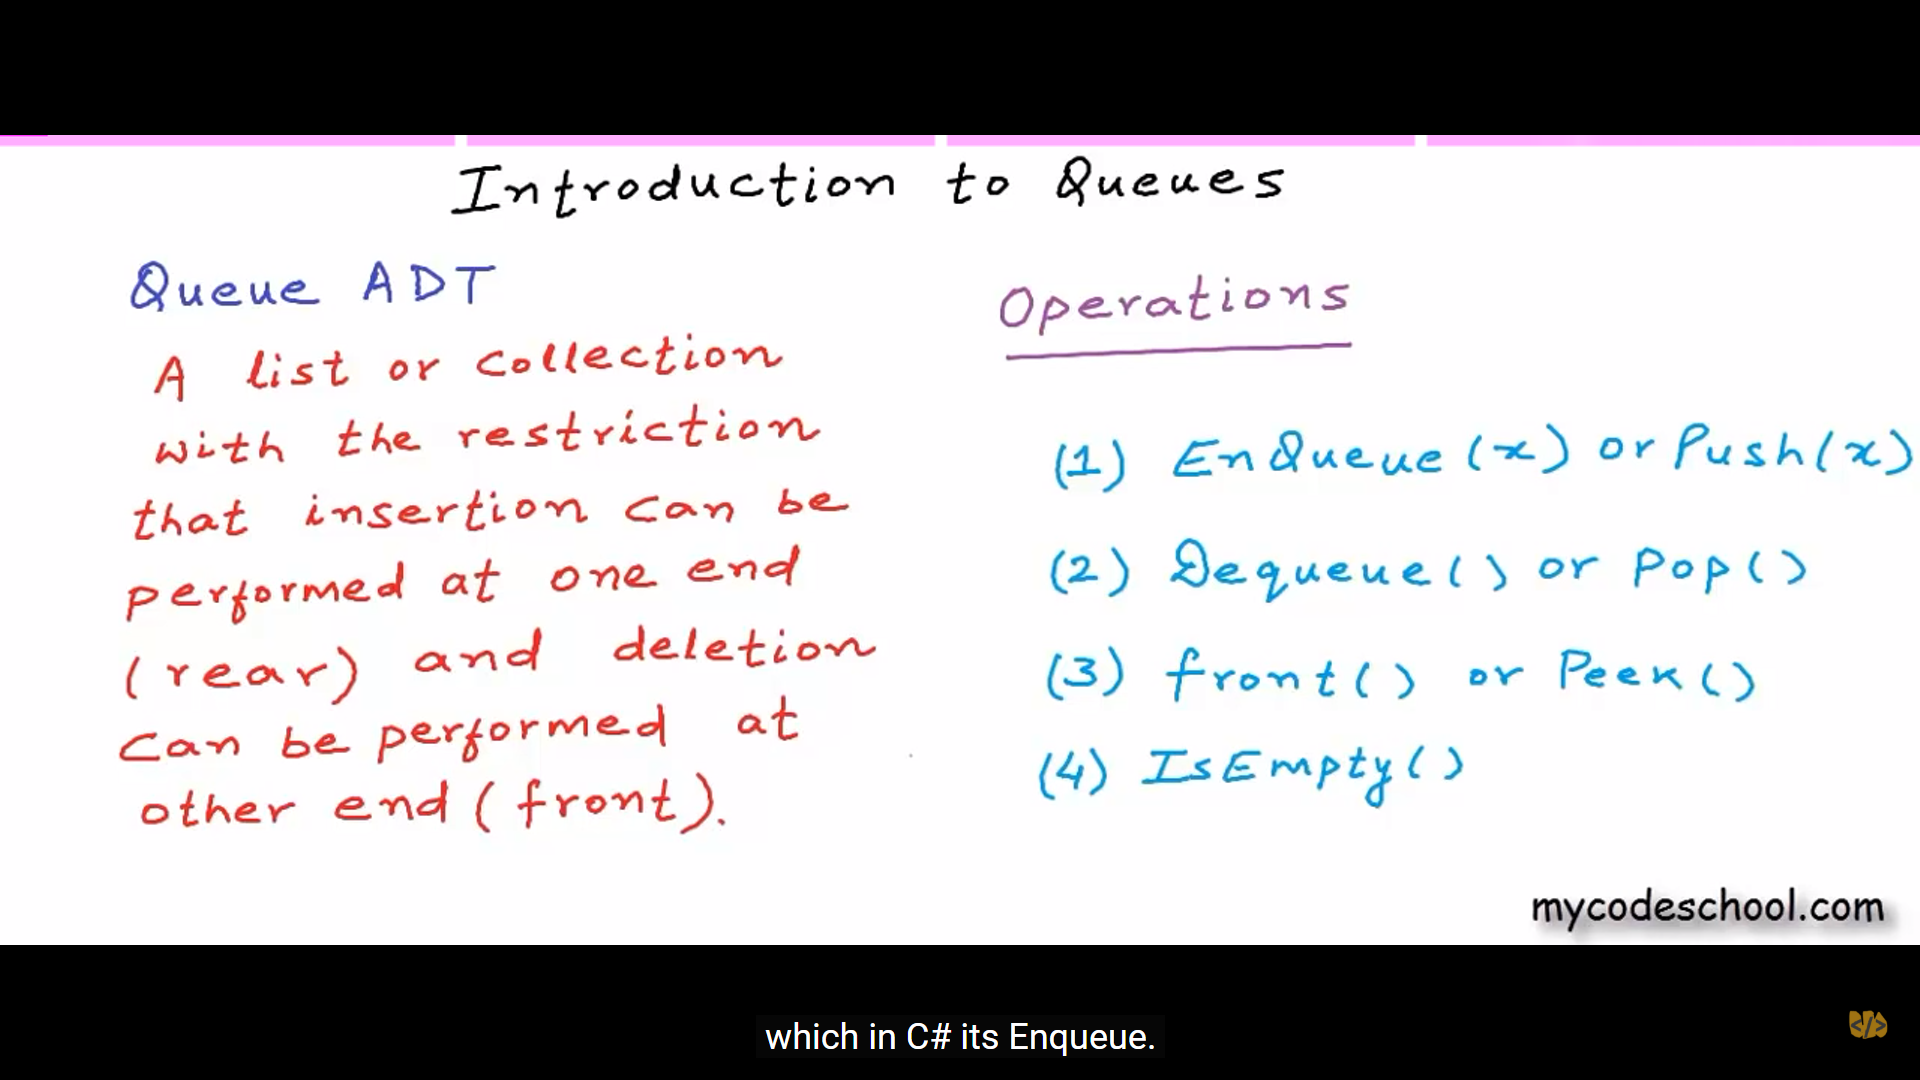 Introduction to Queues
Queue ADT
A list or collection
with the restriction
that insertion can be
performed at one end
(rear) and deletion
can be performed at
other end (front).
Operations
(1) EnQueue(x) or Push(x)
(2) Dequeue() or Pop()
(3) front() or Peek()
(4) IsEmpty()
mycodeschool.com
which in C# its Enqueue.